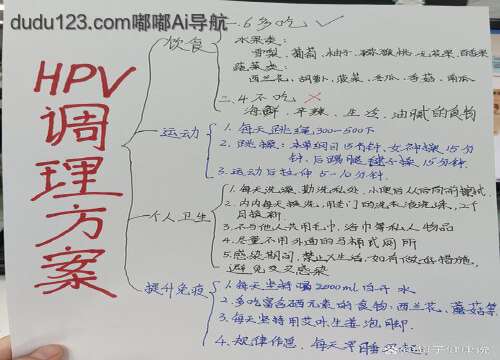 dudu123.com嘟嘟Ai导航
HPV调理方案
饮食
一.6多吃 ✓
水果类:
雪梨、葡萄、柚子、猕猴桃、火龙果、百香果
蔬菜类:
西兰花、胡萝卜、菠菜、冬瓜、香菇、南瓜
二.4不吃 ×
海鲜、辛辣、生冷、油腻的食物
运动
1.每天跳绳,300-500下
2.跳操:本草纲目15分钟,女神操15分
钟,后踢腿健身操15分钟.
3.运动后拉伸5-10分钟.
个人卫生
1.每天洗澡,勤洗私处,小便后从后向前擦拭
2.内内每天换洗,用专门的洗衣液洗涤,三个
月换新
3.不与他人共用毛巾,浴巾等私人物品
4.尽量不用外面的马桶式厕所
5.感染期间,禁止X生活,如有做好措施,
避免交叉感染
提升免疫
1.每天坚持喝2000ml白开水
2.多吃富含硒元素的食物:西兰花、蘑菇等
3.每天坚持用艾叶生姜泡脚.
4.规律作息,每天早睡